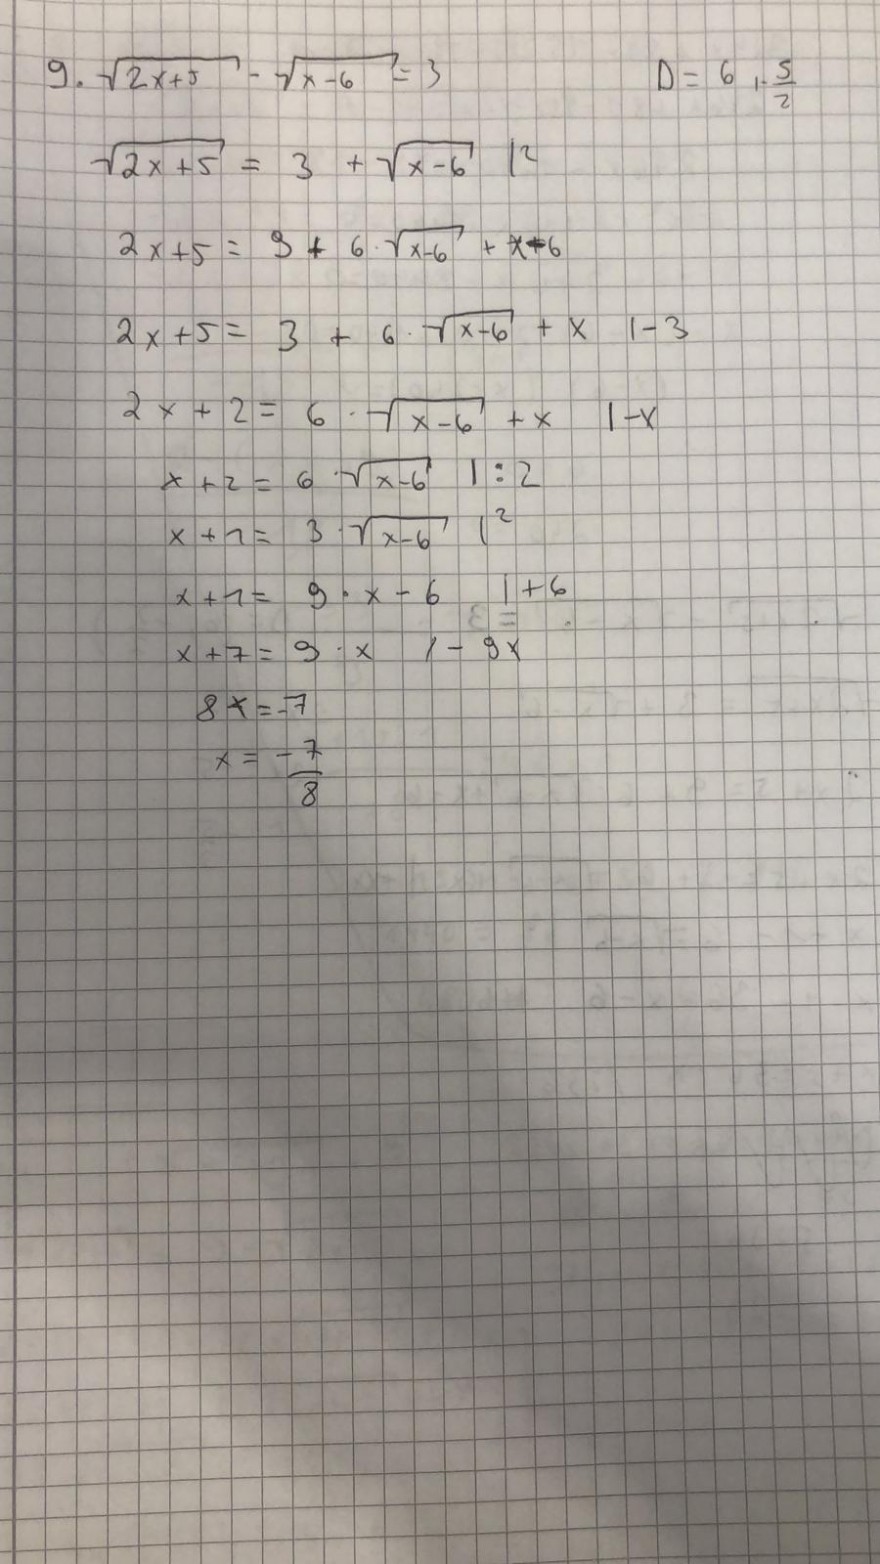 9. √(2x+5) - √(x-6) = 3 D = 6, -5/2
√(2x+5) = 3 + √(x-6) |²
2x+5 = 9 + 6·√(x-6) + x-6
2x+5 = 3 + 6·√(x-6) + x |-3
2x+2 = 6·√(x-6) + x |-x
x+2 = 6·√(x-6) |:2
x+1 = 3·√(x-6) |²
x+1 = 9·x-6 |+6
x+7 = 9·x |-9x
8x = -7
x = -7/8